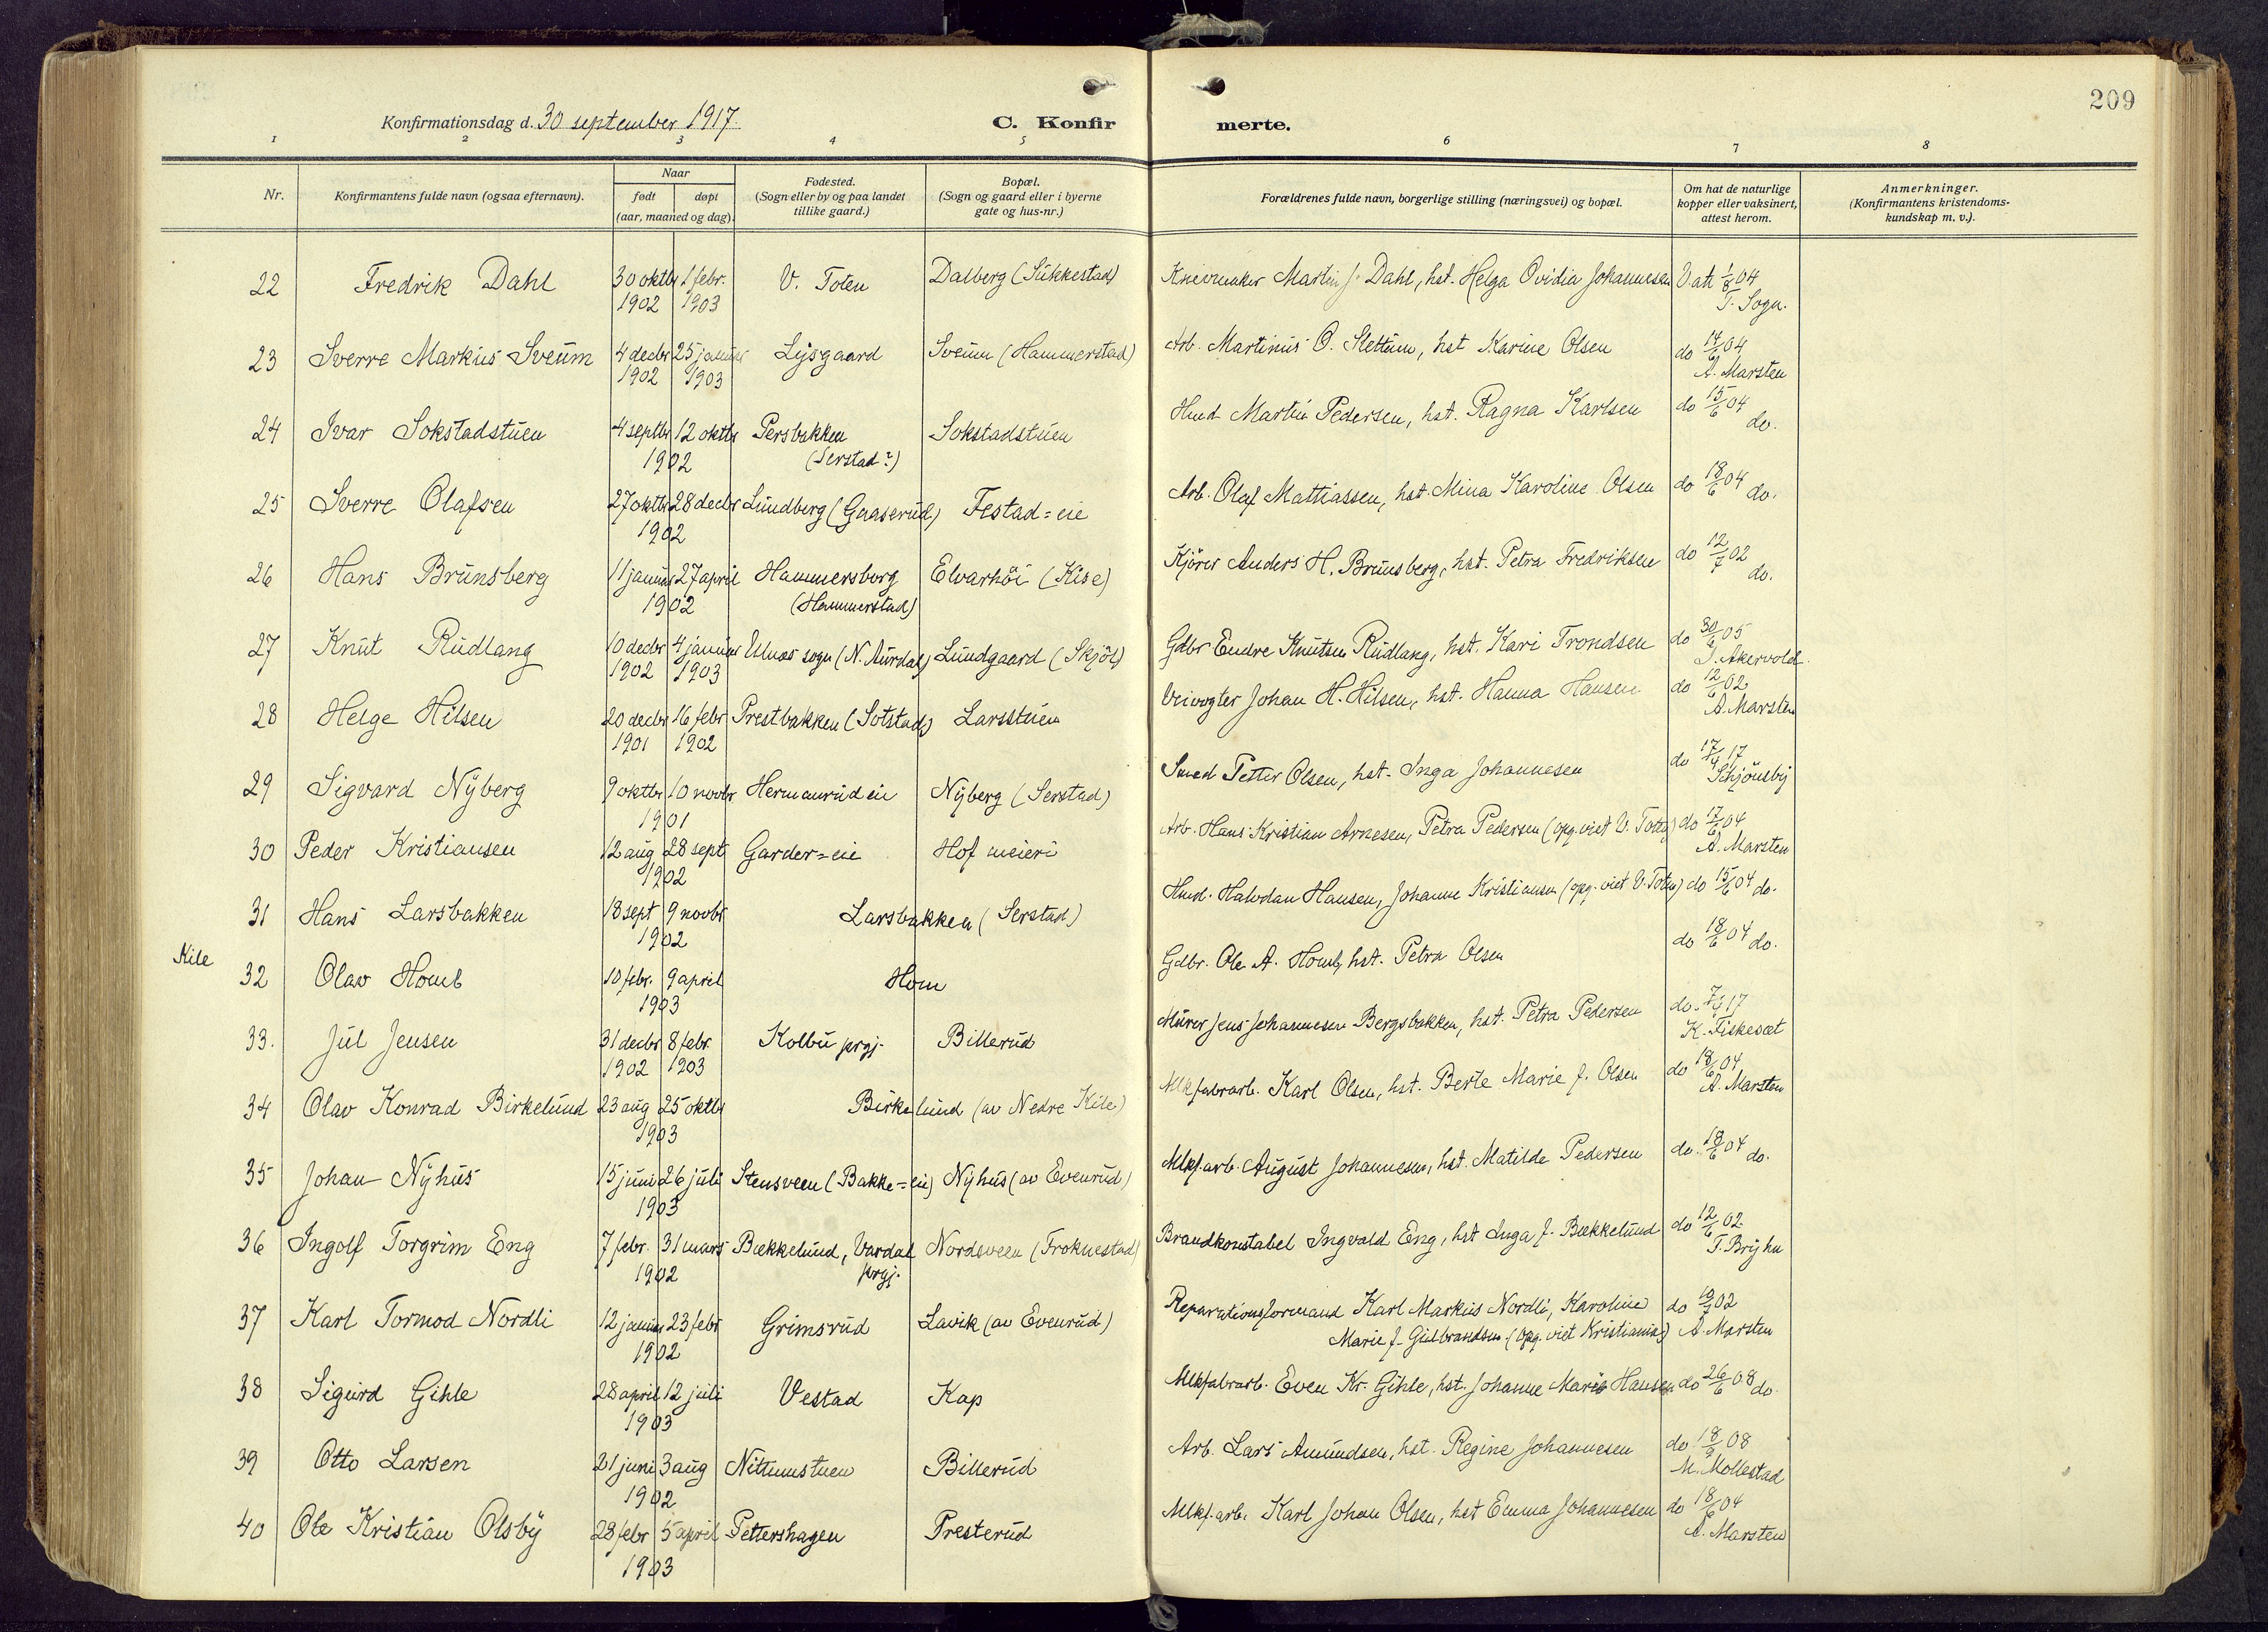 209
Konfirmationsdag d. 30 september 1917.
C. Konfirmerte.
1 2 3 4 5 6 7 8
Nr.
Konfirmantens fulde navn (ogsaa efternavn).
Naar
født døpt
(aar, maaned og dag).
Fødested.
(Sogn eller by og paa landet
tillike gaard.)
Bopæl.
(Sogn og gaard eller i byerne
gate og hus-nr.)
Forældrenes fulde navn, borgerlige stilling (næringsvei) og bopæl.
Om hat de naturlige
kopper eller vaksinert,
attest herom.
Anmerkninger.
(Konfirmantens kristendoms-
kundskap m. v.).
22 Fredrik Dahl 30 oktbr 1 febr. V. Toten Dalberg (Sukkestad) Martin J. Dahl, hst. Helga Ovidia Johannesen V. att 1/8 04
1902 1903 T. Sogn.
23 Sverre Markus Sveum 4 decbr 25 januar Lysgaard Sveum (Hammerstad) Arb. Martinus O. Slettum, hst Karine Olsen do 14/6 04
1902 1903 A. Marsten
24 Ivar Sokstadstuen 4 septbr 12 oktbr Persbakken Sokstadstuen Hmd Martin Pedersen, hst. Ragna Karlsen do 15/6 04 do.
1902 (Serstad?)
25 Sverre Olafsen 27 oktbr 28 decbr Lundberg (Gaaserud) Festad=eie Arb. Olaf Mattiassen, hst. Mina Karoline Olsen do 18/6 04 do.
1902
26 Hans Brunsberg 11 januar 27 april Hammersborg Elvarhöi (Kise) Kjörer Anders H. Brunsberg, hst. Petra Fredriksen do 12/7 02 do.
1902 (Hammerstad)
27 Knut Rudlang 10 decbr 4 januar Ulnes sogn (N. Aurdal) Lundgaard (Skjöl) Gdbr Endre Knutsen Rudlang, hst. Kari Trondsen do 30/6 05
1902 1903 Akervold.
28 Helge Hilsen 20 decbr 16 febr Prestbakken (Sotstad) Larsstuen Veivogter Johan H. Hilsen, hst. Hanna Hansen do 12/6 02
1901 1902 A. Marsten
29 Sigvard Nyberg 9 oktbr 10 novbr Hermanrud eie Nyberg (Serstad) Smed Petter Olsen, hst. Inga Johannesen do 17/4 17
1901 Schjönsby
30 Peder Kristiansen 12 aug 28 sept Garder=eie Hof meieri Arb. Hans Kristian Arnesen, Petra Pedersen (opg. viet V. Toten) do 17/6 04
1902 A. Marsten
31 Hans Larsbakken 18 sept 9 novbr Larsbakken (Serstad) Hmd. Halvdan Hansen, Johanne Kristiansen (opg. viet V. Toten) do 15/6 04 do.
1902
Kile
32 Olav Homb 10 febr. 9 april Hom Gdbr. Ole A. Homb, hst. Petra Olsen do 18/6 04 do.
1903
33. Jul Jensen 31 decbr 8 febr. Kolbu prgj. Billerud Murer Jens Johannesen Bergsbakken, hst. Petra Pedersen do. 7/4 17
1902 1903 K. Fiskesæt
34 Olav Konrad Birkelund 23 aug 25 oktbr Birkelund (av Nedre Kile) Mlkfabrarb. Karl Olsen, hst. Berte Marie J. Olsen do 18/6 04
1903 A. Marsten
35 Johan Nyhus 15 juni 26 juli Stensveen (Bakke=eie) Nyhus (av Evenrud) Mlkf.arb. August Johannesen, hst. Matilde Pedersen do. 18/6 04 do.
1903
36 Ingolf Torgrim Eng 7 febr. 31 mars Bækkelund, Vardal Nordsveen (Froknestad) Brandkonstabel Ingvald Eng, hst Inga J. Bækkelund do 12/6 02.
1902 prgj. T. Bryhn
37 Karl Tormod Nordli 12 januar 23 febr Grimsrud Lavik (av Evenrud) Reparationsformand Karl Markus Nordli, Karoline do 19/7 02
1902 Marie J. Gulbrandsen (opg. viet Kristiania) A. Marsten
38 Sigurd Gihle 28 april 12 juli Vestad Kap Mlkfabrarb. Even Kr. Gihle, hst. Johanne Marie Hansen do 26/6 08 do.
1903
39 Otto Larsen 21 juni 3 aug Nittumstuen Billerud Arb. Lars Amundsen, hst. Regine Johannesen do 18/9 08
1902 M. Mollestad
40 Ole Kristian Olsby 28 febr 5 april Pettershagen Presterud Mlkf.arb. Karl Johan Olsen, hst Emma Johannesen do 18/6 04
1903 A. Marsten